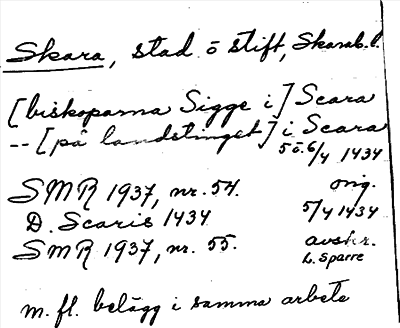 Skara, stad o stift, Skarab.l.
[biskoparna Sigge i] Scara
-- [på landstinget] i Scara
5 o. 6/4 1434
SMR 1937, nr. 54. orig.
D. Scaris 1434 5/4 1434
SMR 1937, nr. 55. avskr.
L. Sparre
m. fl. belägg i samma arbete